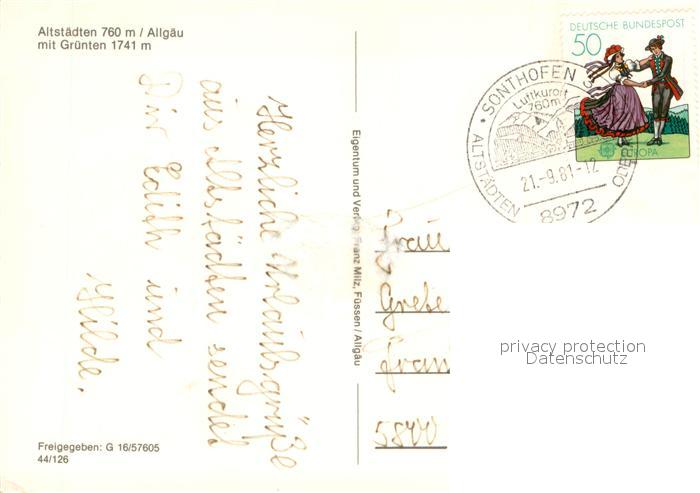 Altstädten 760 m / Allgäu
mit Grünten 1741 m
Herzliche Urlaubsgrüße
aus Altstädten sendet
Dir Edith und
Hilde.
Freigegeben: G 16/57605
44/126
Eigentum und Verlag: Franz Milz, Füssen/Allgäu
DEUTSCHE BUNDESPOST
50
EUROPA
SONTHOFEN 3
Luftkurort
760m
21.-9.81-12
ALTSTÄDTEN
8972
Frau
Grete
5800
privacy protection
Datenschutz